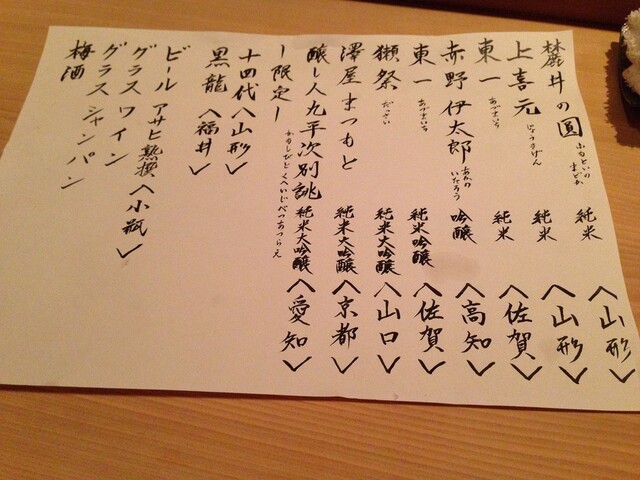 麓井の圓 ふもといの まどか 純米 〈山形〉
上喜元 じょうきげん 純米 〈山形〉
東一 あづまいち 純米 〈佐賀〉
赤野伊太郎 あかの いたろう 吟醸 〈高知〉
東一 あづまいち 純米吟醸 〈佐賀〉
獺祭 だっさい 純米大吟醸 〈山口〉
澤屋まつもと 純米大吟醸 〈京都〉
醸し人九平次別誂 純米大吟醸 〈愛知〉
かもしびどくへいじべつあつらえ
ー限定ー
十四代〈山形〉
黒龍〈福井〉
ビール アサヒ熟撰〈小瓶〉
グラスワイン
グラスシャンパン
梅酒